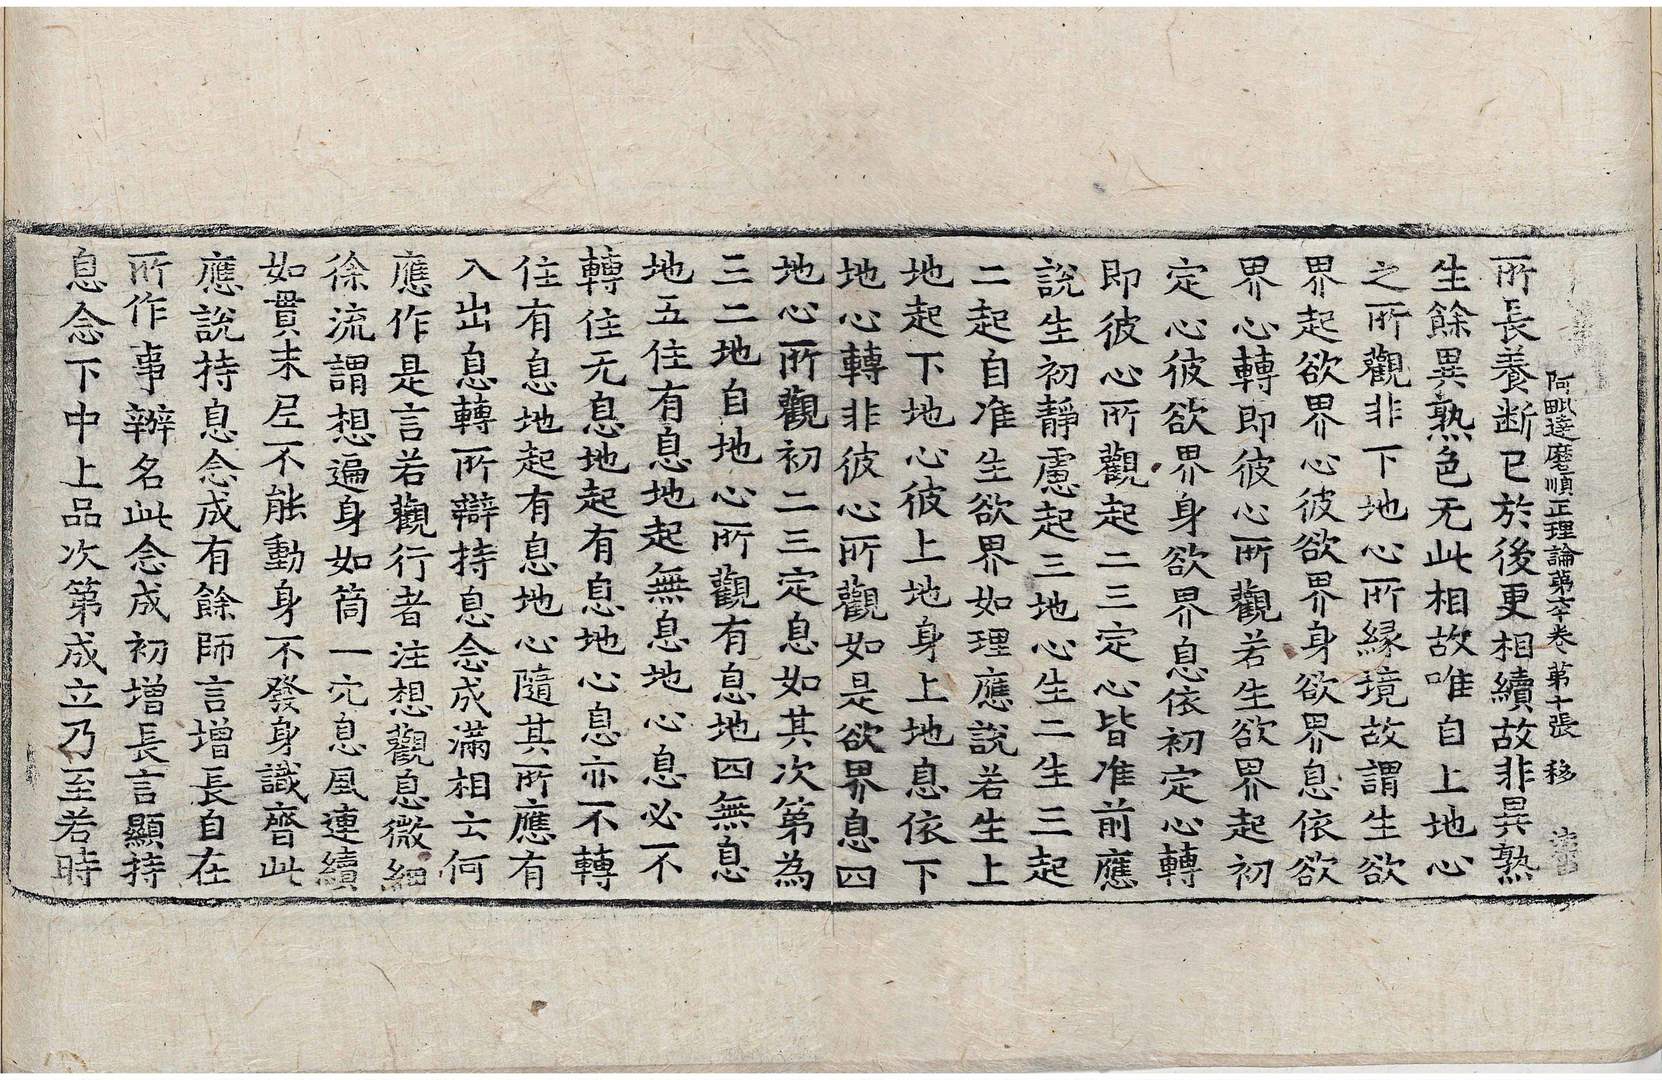 阿毗達磨順正理論第六十卷 第十張 移
所長養断已於後更相續故非異熟
生餘異熟色无此相故唯自上地心
之所觀非下地心所縁境故謂生欲
界起欲界心彼欲界身欲界息依欲
界心轉即彼心所觀若生欲界起初
定心彼欲界身欲界息依初定心轉
即彼心所觀起二三定心皆准前應
說生初靜慮起三地心生二生三起
二起自准生欲界如理應說若生上
地起下地心彼上地身上地息依下
地心轉非彼心所觀如是欲界息四
地心所觀初二三定息如其次第為
三二地自地心所觀有息地四無息
地五住有息地起無息地心息必不
轉住无息地起有息地心息亦不轉
住有息地起有息地心隨其所應有
入出息轉所辯持息念成滿相云何
應作是言若觀行者注想觀息微細
徐流謂想遍身如筒一穴息風連續
如貫末尼不能動身不發身識齊此
應說持息念成有餘師言增長自在
所作事辦名此念成初增長言顯持
息念下中上品次第成立乃至若時